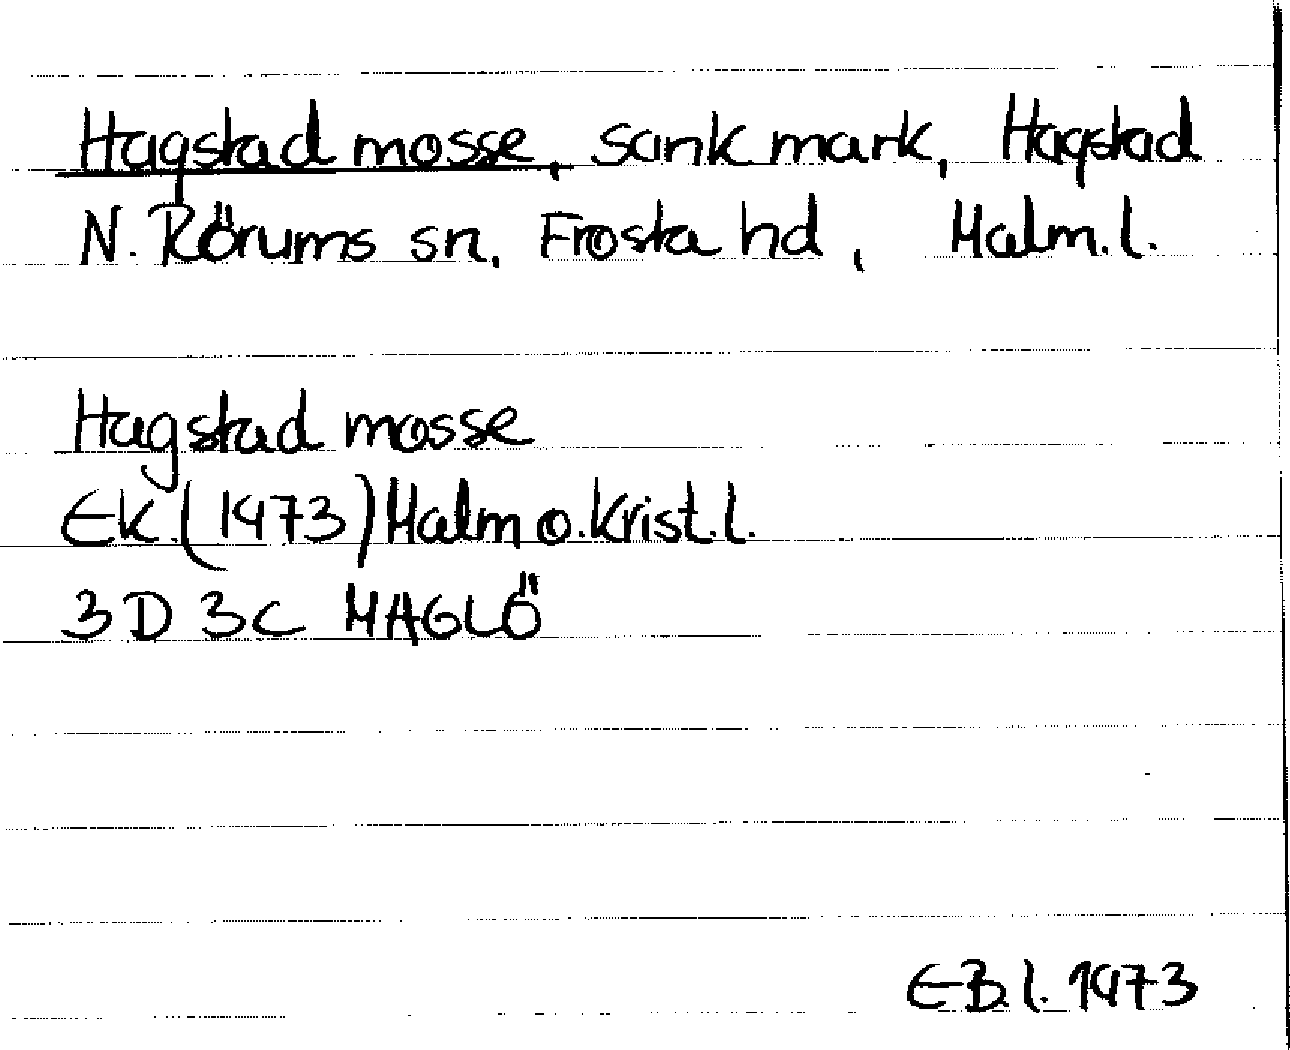 Hagstad mosse, sank mark, Hagstad
N. Rörums sn, Frosta hd, Malm.l.
Hagstad mosse
EK.(1973) Malm o. Krist.l.
3D 3C MAGLÖ
EB.l. 1973